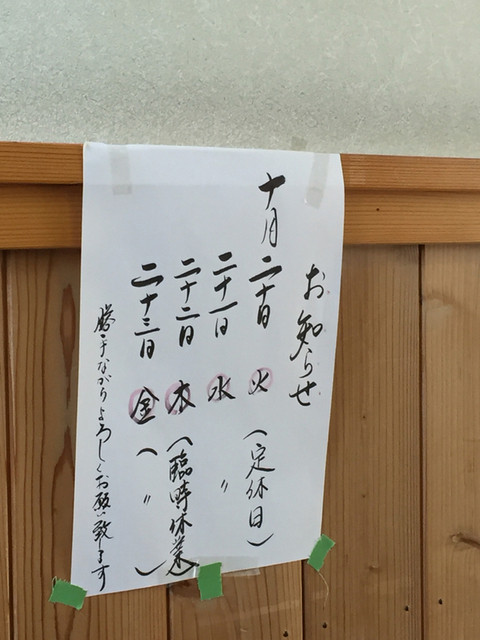 お知らせ
十月二十日 火 (定休日)
二十一日 水 〃
二十二日 木 (臨時休業)
二十三日 金 ( 〃 )
勝手ながらよろしくお願い致します